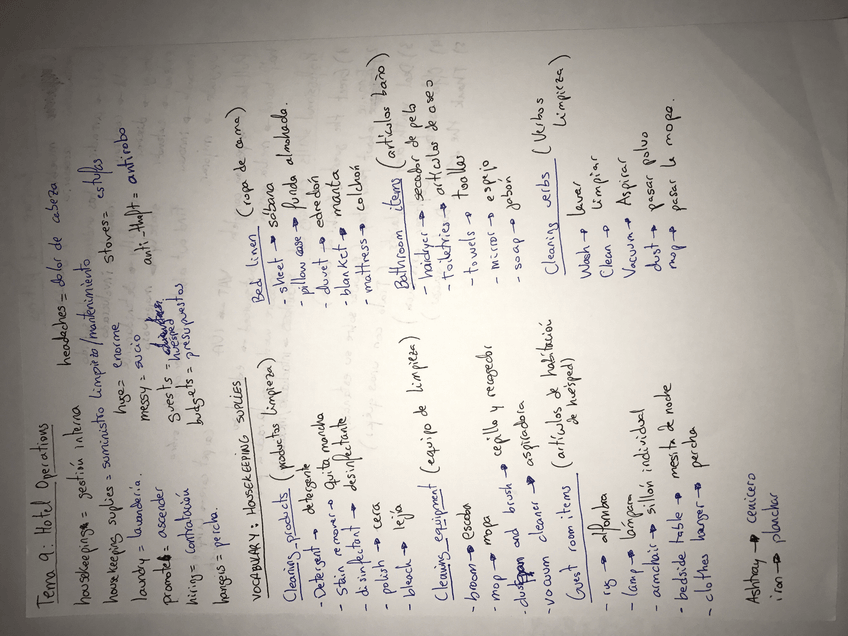 Tema 9: Hotel Operations
housekeeping = gestión interna
headaches = dolor de cabeza
housekeeping suplies = suministro limpieza/mantenimiento
laundry = lavandería.
huge = enorme
stoves = estufas
promote = ascender
messy = sucio
anti-theft = antirobo
hiring = contratación
guests = huésped
hangers = percha.
budgets = presupuestos
VOCABULARY: HOUSEKEEPING SUPLIES
Cleaning products (productos limpieza)
- Detergent → detergente
- Stain remover → quita mancha
- disinfectant → desinfectante
- polish → cera
- bleach → lejía
Cleaning equipment (equipo de limpieza)
- broom → escoba
- mop → mopa
- dustpan and brush → cepillo y recogedor
- vacuum cleaner → aspiradora
Guest room items (artículos de habitación de huésped)
- rug → alfombra
- lamp → lámpara
- armchair → sillón individual
- bedside table → mesita de noche
- clothes hanger → percha
Ashtray → cenicero
iron → planchar
Bed linen (ropa de cama)
- sheet → sábana
- pillow case → funda almohada.
- duvet → edredón
- blanket → manta
- mattress → colchón
Bathroom items (artículos baño)
- hairdyer → secador de pelo
- toiletries → artículos de aseo
- towels → toallas
- mirror → espejo
- soap → jabón
Cleaning verbs (Verbos limpieza)
Wash → lavar
Clean → limpiar
Vacuum → Aspirar
dust → pasar polvo
mop → pasar la mopa.